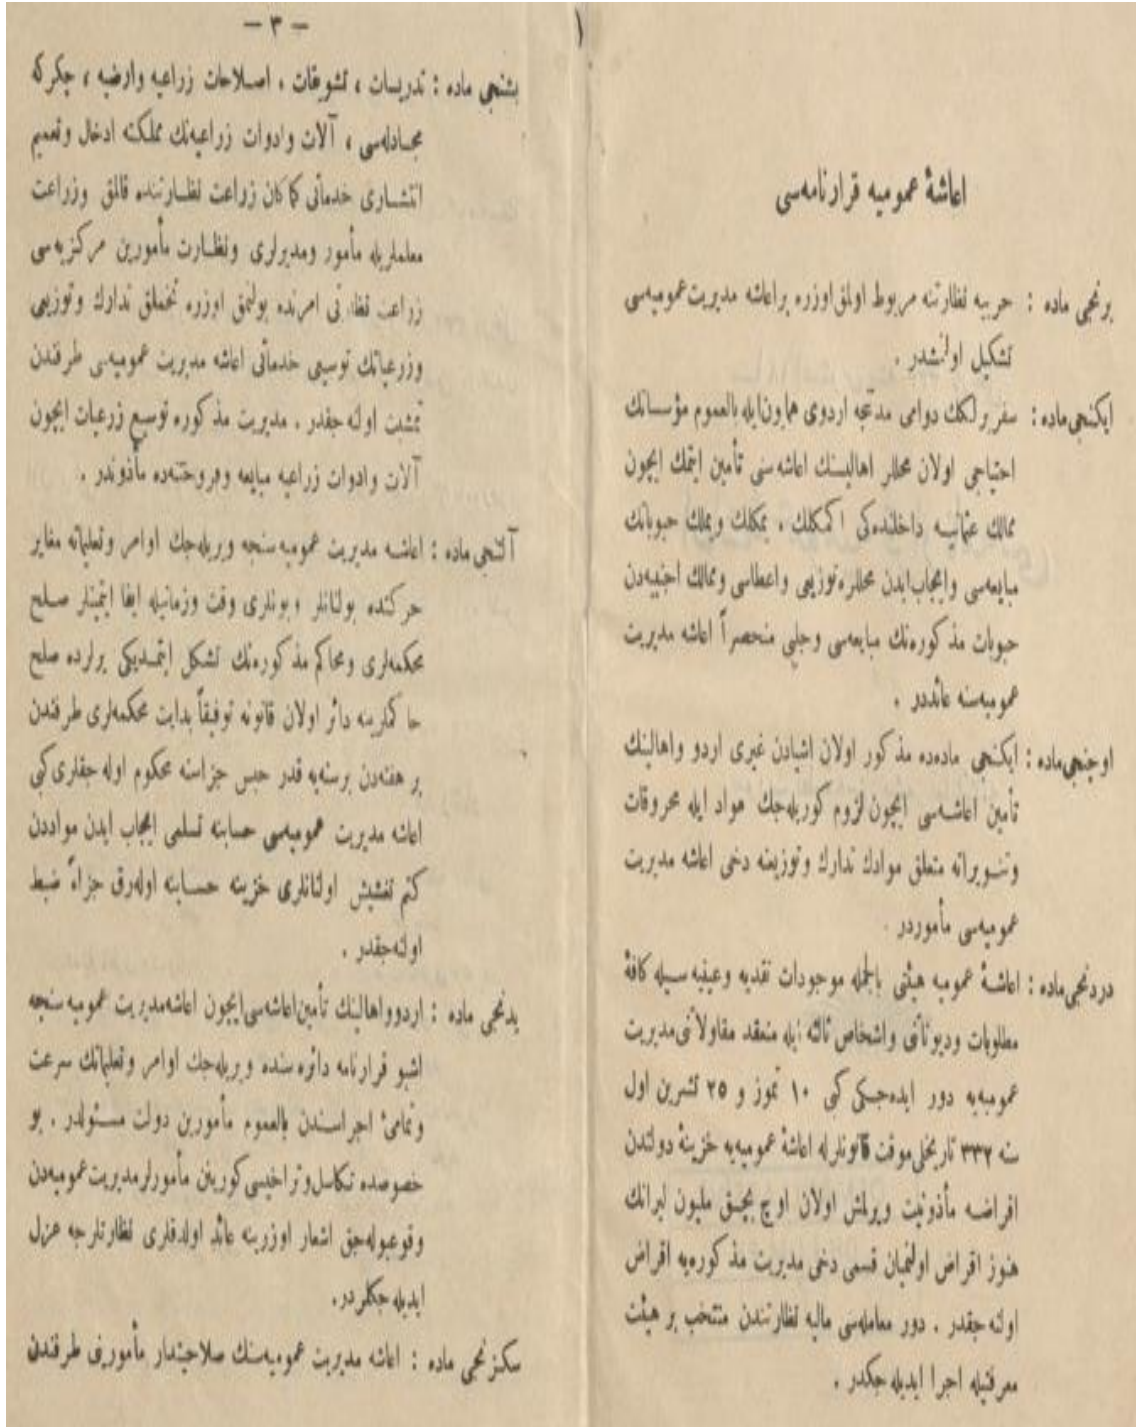 اعاشهٔ عمومیه قرارنامه‌سی
برنجی ماده : حربیه نظارتنه مربوط اولمق اوزره براعاشه مدیریت عمومیه‌سی
تشکیل اولنمشدر .
ایکنجی ماده : سفربرلکك دوامی مدتجه اردوی همایون ایله بالعموم مؤسساتك
احتیاجی اولان محللر اهالیسنك اعاشه‌سنی تأمین ایتمك ایچون
ممالك عثمانیه داخلنده‌کی اکمکلك ، یمکلك ویملك حبوباتك
مبایعه‌سی وایجاب ایدن محللره توزیعی واعطاسی وممالك اجنبیه‌دن
حبوبات مذکوره‌نك مبایعه‌سی وجلبی منحصراً اعاشه مدیریت
عمومیه‌سنه عائددر .
اوچنجی ماده : ایکنجی ماده‌ده مذکور اولان اشیادن غیری اردو واهالینك
تأمین اعاشه‌سی ایچون لزوم کوریله‌جك مواد ایله محروقات
وتنویراته متعلق موادك تدارك وتوزیعنه دخی اعاشه مدیریت
عمومیه‌سی مأموردر .
دردنجی ماده : اعاشهٔ عمومیه هیئتی بالجمله موجودات نقدیه وعینیه سیله کافهٔ
مطلوبات ودیوناتی واشخاص ثالثه ایله منعقد مقاولاتی مدیریت
عمومیه‌یه دور ایده‌جکی کبی ١٠ تموز و ٢٥ تشرین اول
سنه ٣٣٢ تاریخلی موقت قانونلرله اعاشهٔ عمومیه‌یه خزینهٔ دولتدن
اقراضنه مأذونیت ویرلمش اولان اوچ بچق ملیون لیرانك
هنوز اقراض اولنمیان قسمی دخی مدیریت مذکوره‌یه اقراض
اولنه‌جقدر . دور معامله‌سی مالیه نظارتندن منتخب بر هیئت
معرفتیله اجرا ایدیله‌جکدر .
— ٣ —
بشنجی ماده : تدریسات ، تشویقات ، اصلاحات زراعیه وارضیه ، چکرکه
مجادله‌سی ، آلات وادوات زراعیه‌نك مملکته ادخال وتعمیم
انتشاری خدماتی کماکان زراعت نظارتنده قالمق وزراعت
معلملریله مأمور ومدیرلری ونظارت مأمورین مرکزیه‌سی
زراعت نظارتی امرنده بولنمق اوزره تخملق تدارك وتوزیعی
وزرعیاتك توسیعی خدماتی اعاشه مدیریت عمومیه‌سی طرفندن
تمشیت اولنه‌جقدر . مدیریت مذکوره توسیع زرعیات ایچون
آلات وادوات زراعیه مبایعه وفروختنده مأذوندر .
آلتنجی ماده : اعاشه مدیریت عمومیه سنجه ویریله‌جك اوامر وتعلیماته مغایر
حرکتده بولنانلر وبونلری وقت وزمانیله ایفا ایتمینلر صلح
محکمه‌لری ومحاکم مذکوره‌نك تشکل ایتمدیکی یرلرده صلح
حاکملرینه دائر اولان قانونه توفیقاً بدایت محکمه‌لری طرفندن
بر هفته‌دن برسنه‌یه قدر حبس جزاسنه محکوم اوله جقلری کبی
اعاشه مدیریت عمومیه‌سی حسابنه تسلمی ایجاب ایدن مواددن
کتم تفتیش اولنانلری خزینه حسابنه اوله‌رق جزاءً ضبط
اولنه‌جقدر .
یدنجی ماده : اردوواهالینك تأمین اعاشه‌سی ایچون اعاشه مدیریت عمومیه سنجه
اشبو قرارنامه دائره سنده ویریله‌جك اوامر وتعلیماتك سرعت
وتمامیٔ اجراسندن بالعموم مأمورین دولت مسئولدر . بو
خصوصده تکاسل وتراخیسی کوریلن مأمورلر مدیریت عمومیه‌دن
وقوعبوله‌جق اشعار اوزرینه عائد اولدقلری نظارتلرجه عزل
ایدیله جکلردر.
سکزنجی ماده : اعاشه مدیریت عمومیه‌سنك صلاحیتدار مأمورینی طرفندن